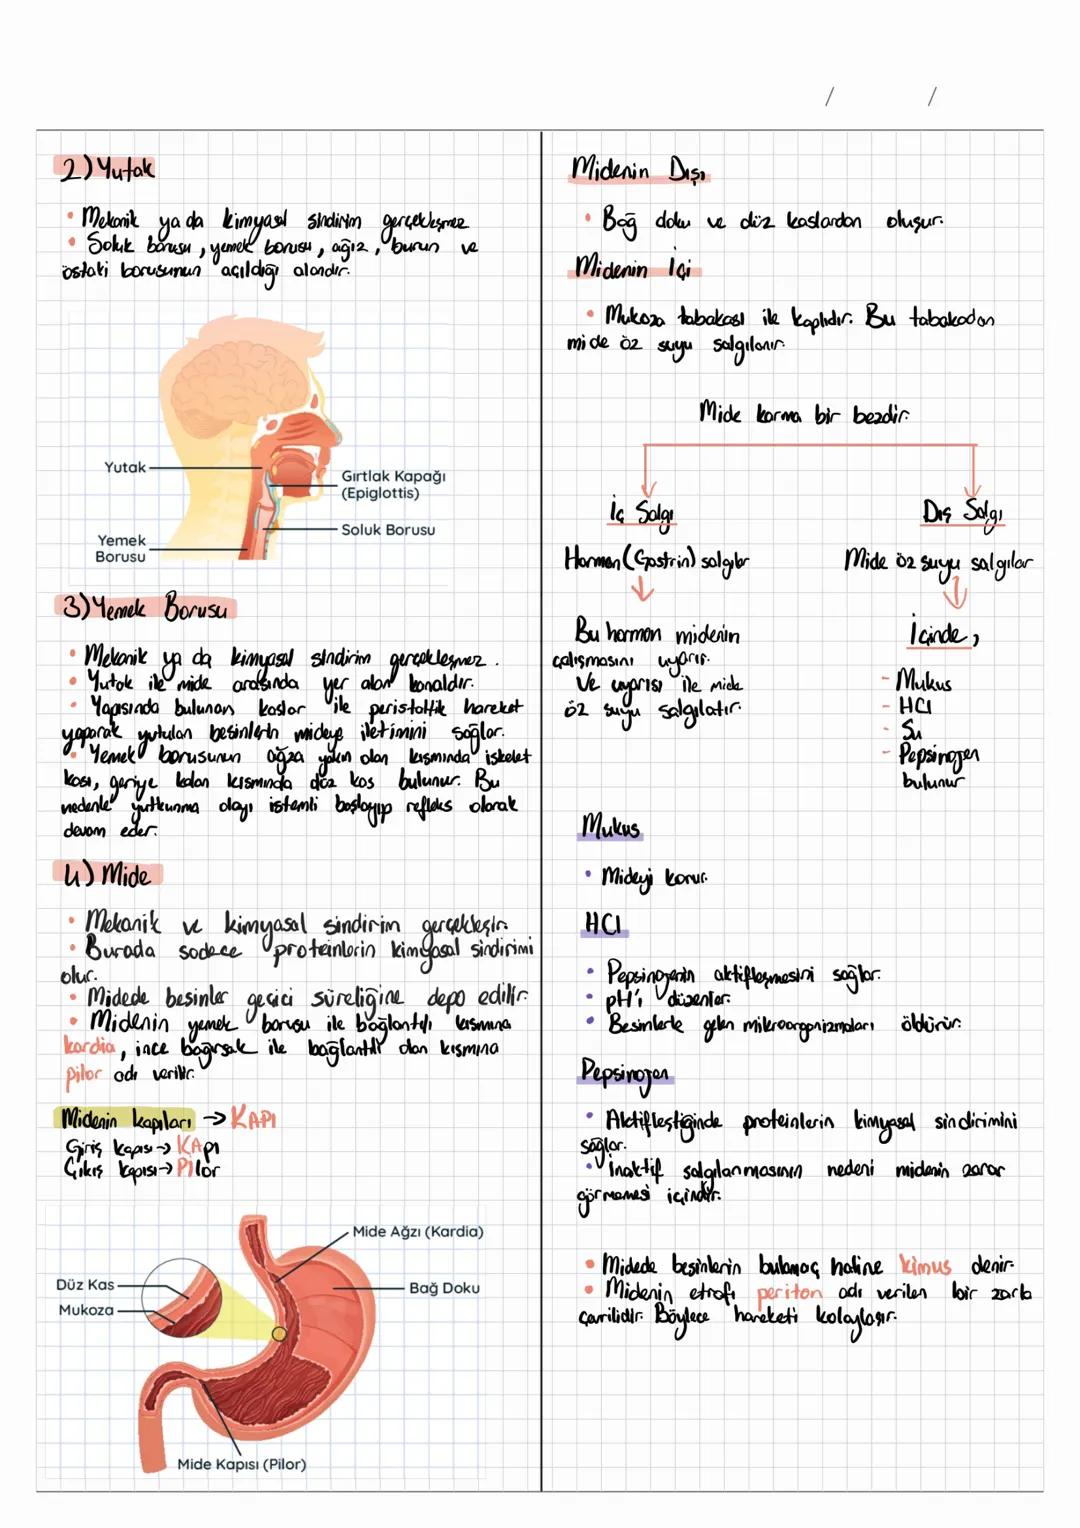 / /
2) Yutak
• Mekanik ya da kimyasal sindirim gerçekleşmez
• Soluk borusu, yemek borusu, ağız, burun ve
östaki borusunun açıldığı alandır.
Yutak
Gırtlak Kapağı
(Epiglottis)
Soluk Borusu
Yemek
Borusu
3) Yemek Borusu
• Mekanik ya da kimyasal sindirim gerçekleşmez.
• Yutak ile mide arasında yer alan kanaldır.
• Yapısında bulunan kaslar ile peristaltik hareket
yaparak yutulan besinlerin mideye iletimini sağlar.
• Yemek borusunun ağza yakın olan kısmında iskelet
kası, geriye kalan kısmında düz kas bulunur. Bu
nedenle yutkunma olayı istemli başlayıp refleks olarak
devam eder.
4) Mide
• Mekanik ve kimyasal sindirim gerçekleşir.
• Burada sadece proteinlerin kimyasal sindirimi
olur.
• Midede besinler geçici süreliğine depo edilir.
• Midenin yemek borusu ile bağlantılı kısmına
kardia, ince bağırsak ile bağlantılı olan kısmına
pilor adı verilir.
Midenin kapıları → KAPI
Giriş kapısı → KApı
Çıkış kapısı → PIlor
Mide Ağzı (Kardia)
Düz Kas
Bağ Doku
Mukoza
Mide Kapısı (Pilor)
Midenin Dışı
• Bağ doku ve düz kaslardan oluşur.
Midenin İçi
• Mukoza tabakası ile kaplıdır. Bu tabakadan
mide öz suyu salgılanır.
Mide karma bir bezdir.
İç Salgı
Dış Salgı
Hormon (Gastrin) salgılar
Mide öz suyu salgılar
Bu hormon midenin
çalışmasını uyarır.
Ve uyarısı ile mide
öz suyu salgılatır.
İçinde,
- Mukus
- HCl
- Su
- Pepsinojen
bulunur
Mukus
• Mideyi korur.
HCl
• Pepsinojenin aktifleşmesini sağlar.
• pH'ı düzenler.
• Besinlerle gelen mikroorganizmaları öldürür.
Pepsinojen
• Aktifleştiğinde proteinlerin kimyasal sindirimini
sağlar.
• İnaktif salgılanmasının nedeni midenin zarar
görmemesi içindir.
• Midede besinlerin bulamaç haline kimus denir.
• Midenin etrafı periton adı verilen bir zarla
çevrilidir. Böylece hareketi kolaylaşır.